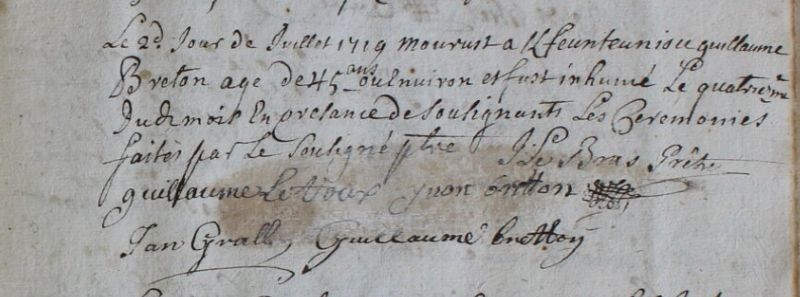 Le 2d Jour de Juillet 1719 mourust a Kfeunteuniou guillaume
Breton age de 45 ans ou Environ et fust inhumé Le quatrieme
Dudt mois En presance de soulignants Les Ceremonies
faites par Le souligné ptre J: Le Bras Prêtre
guillaume Yuan bretton
Jan Cyrall Guillaume bretton